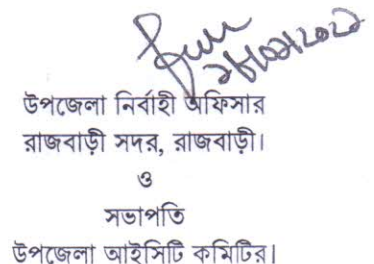 উপজেলা নির্বাহী অফিসার
রাজবাড়ী সদর, রাজবাড়ী।
ও
সভাপতি
উপজেলা আইসিটি কমিটির।